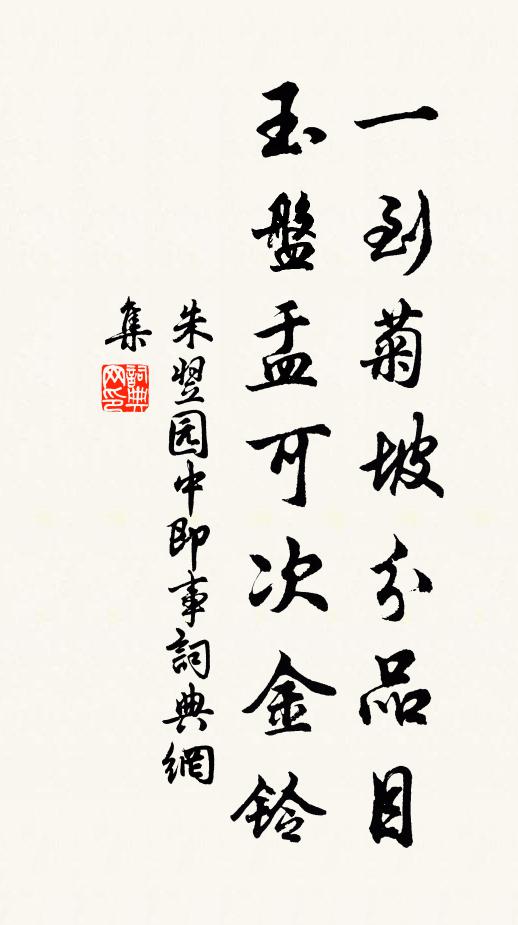 一到菊坡分品目
玉盤盂可次金鈴
朱翌园中即事詞典網
集
詞典网印